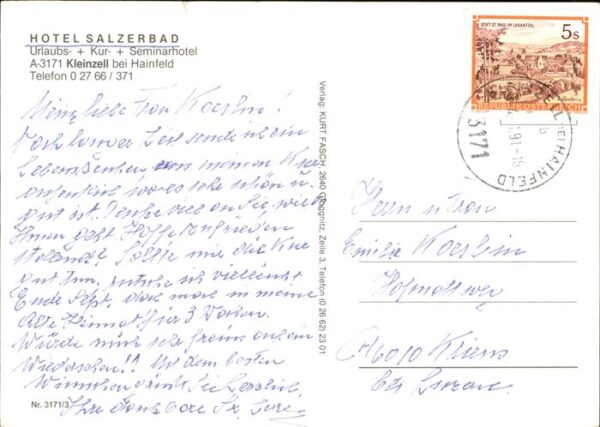 HOTEL SALZERBAD
Urlaubs- + Kur- + Seminarhotel
A-3171 Kleinzell bei Hainfeld
Telefon 0 27 66 / 371
Meine liebe Frau
Nach langer Zeit sende ich ein
Lebenszeichen, von meinem
wo es sehr schön u.
gut ist. Denke viel an Sie, wie
Ihnen geht. Hoffe zufrieden
stellend! Sollte mir die Kur
gut tun, rutsche ich vielleicht
Ende Sept. in meine
Alte Heimat für 3 Wochen.
Würde mich sehr freuen auf ein
Wiedersehen!! Mit den besten
Wünschen Sie herzlich
Ihre
Nr. 3171/3
Verlag: KURT FASCH, 2640 Gloggnitz, Zeile 3, Telefon (0 26 62) 23 01
STIFT ST. PAUL IM LAVANTTAL
5 S
REPUBLIK ÖSTERREICH
KLEINZELL BEI HAINFELD
3171
91-15
Herrn u Frau
Emilie
Hofmattweg
CH 6010 Kriens
bei Luzern